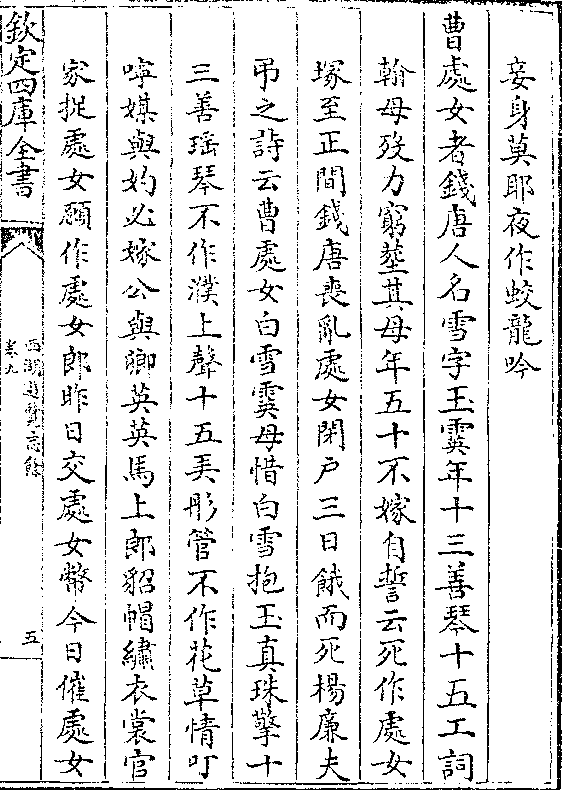 妾身莫耶夜作蛟龍吟
曹處女者錢唐人名雪字玉霙年十三善琴十五工詞
翰母歿力窮塟其母年五十不嫁自誓云死作處女
塚至正間錢唐喪亂處女閉戸三日餓而死楊廉夫
弔之詩云曹處女白雪霙母惜白雪抱玉真珠擎十
三善瑶琴不作濮上聲十五弄彤管不作花草情叮
嚀媒與妁必嫁公與卿英英馬上郎貂帽繡衣裳官
家捉處女願作處女郎昨日交處女幣今日催處女
欽定四庫全書
西湖遊覽志餘
卷九
五